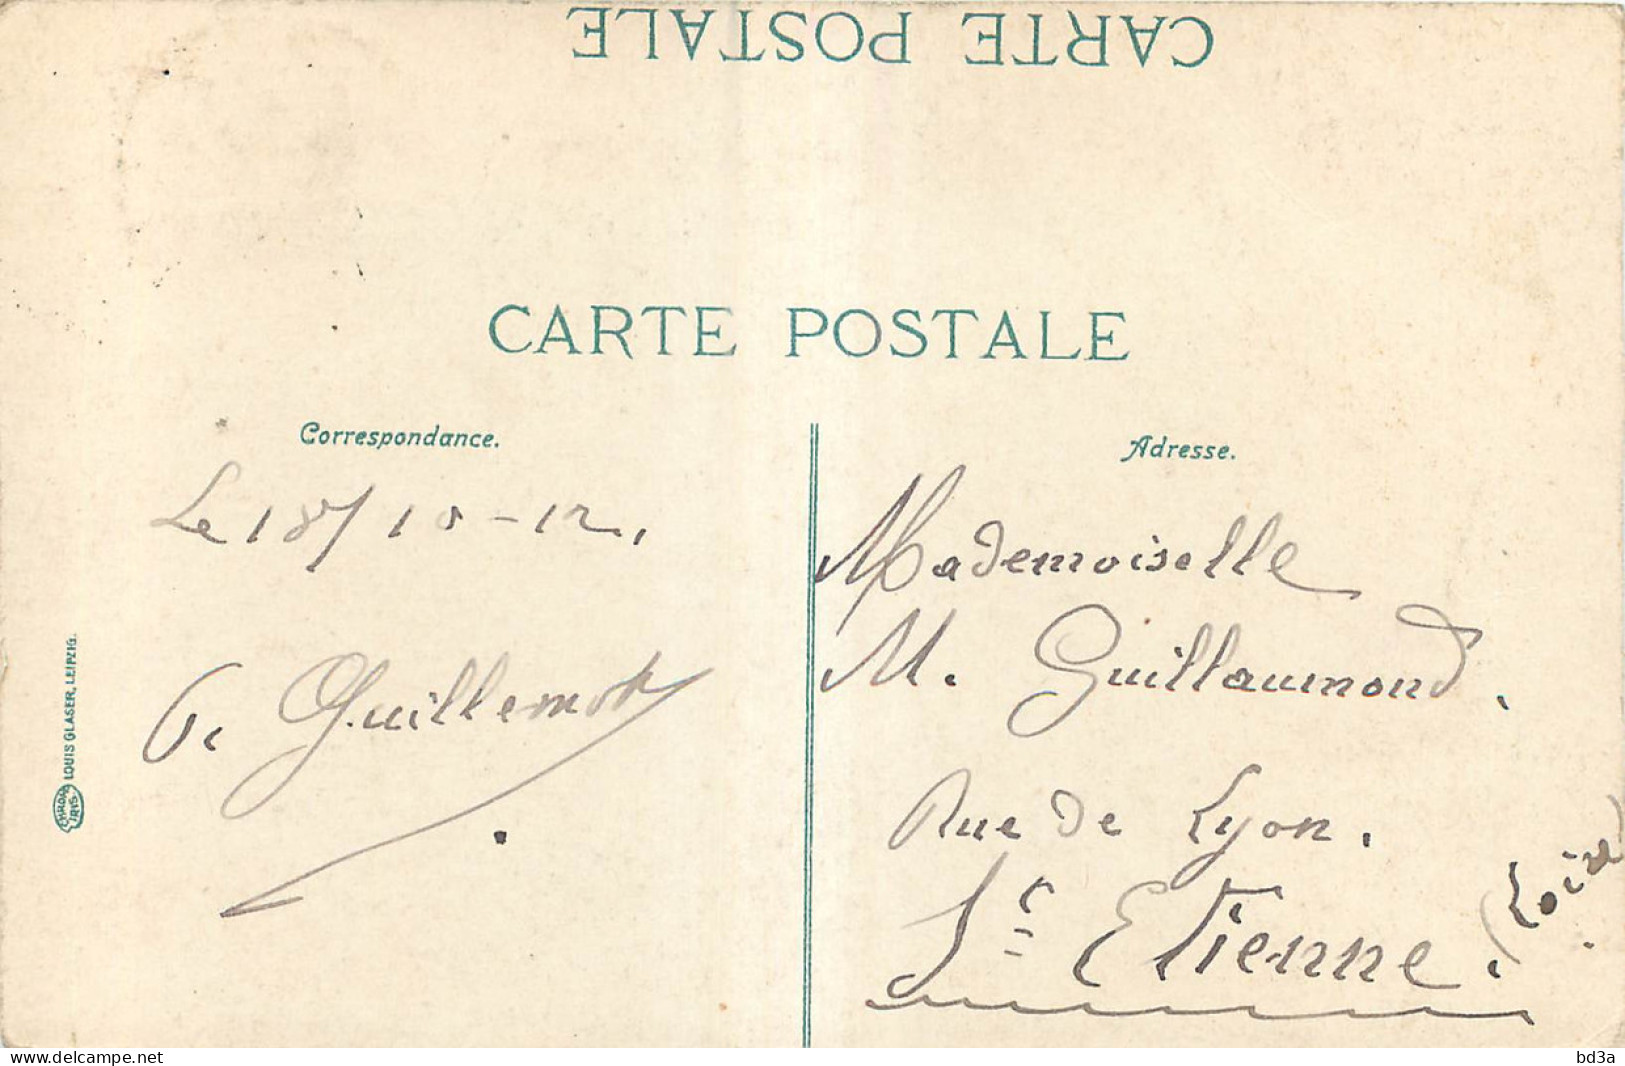 CARTE POSTALE
CARTE POSTALE
Correspondance.
Le 18/10-12.
G. Guillemot
LOUIS GLASER, LEIPZIG.
CHROMO
IRIS.
Adresse.
Mademoiselle
M. Guillaumond.
Rue de Lyon.
St Etienne. (Loire)
www.delcampe.net
bd3a